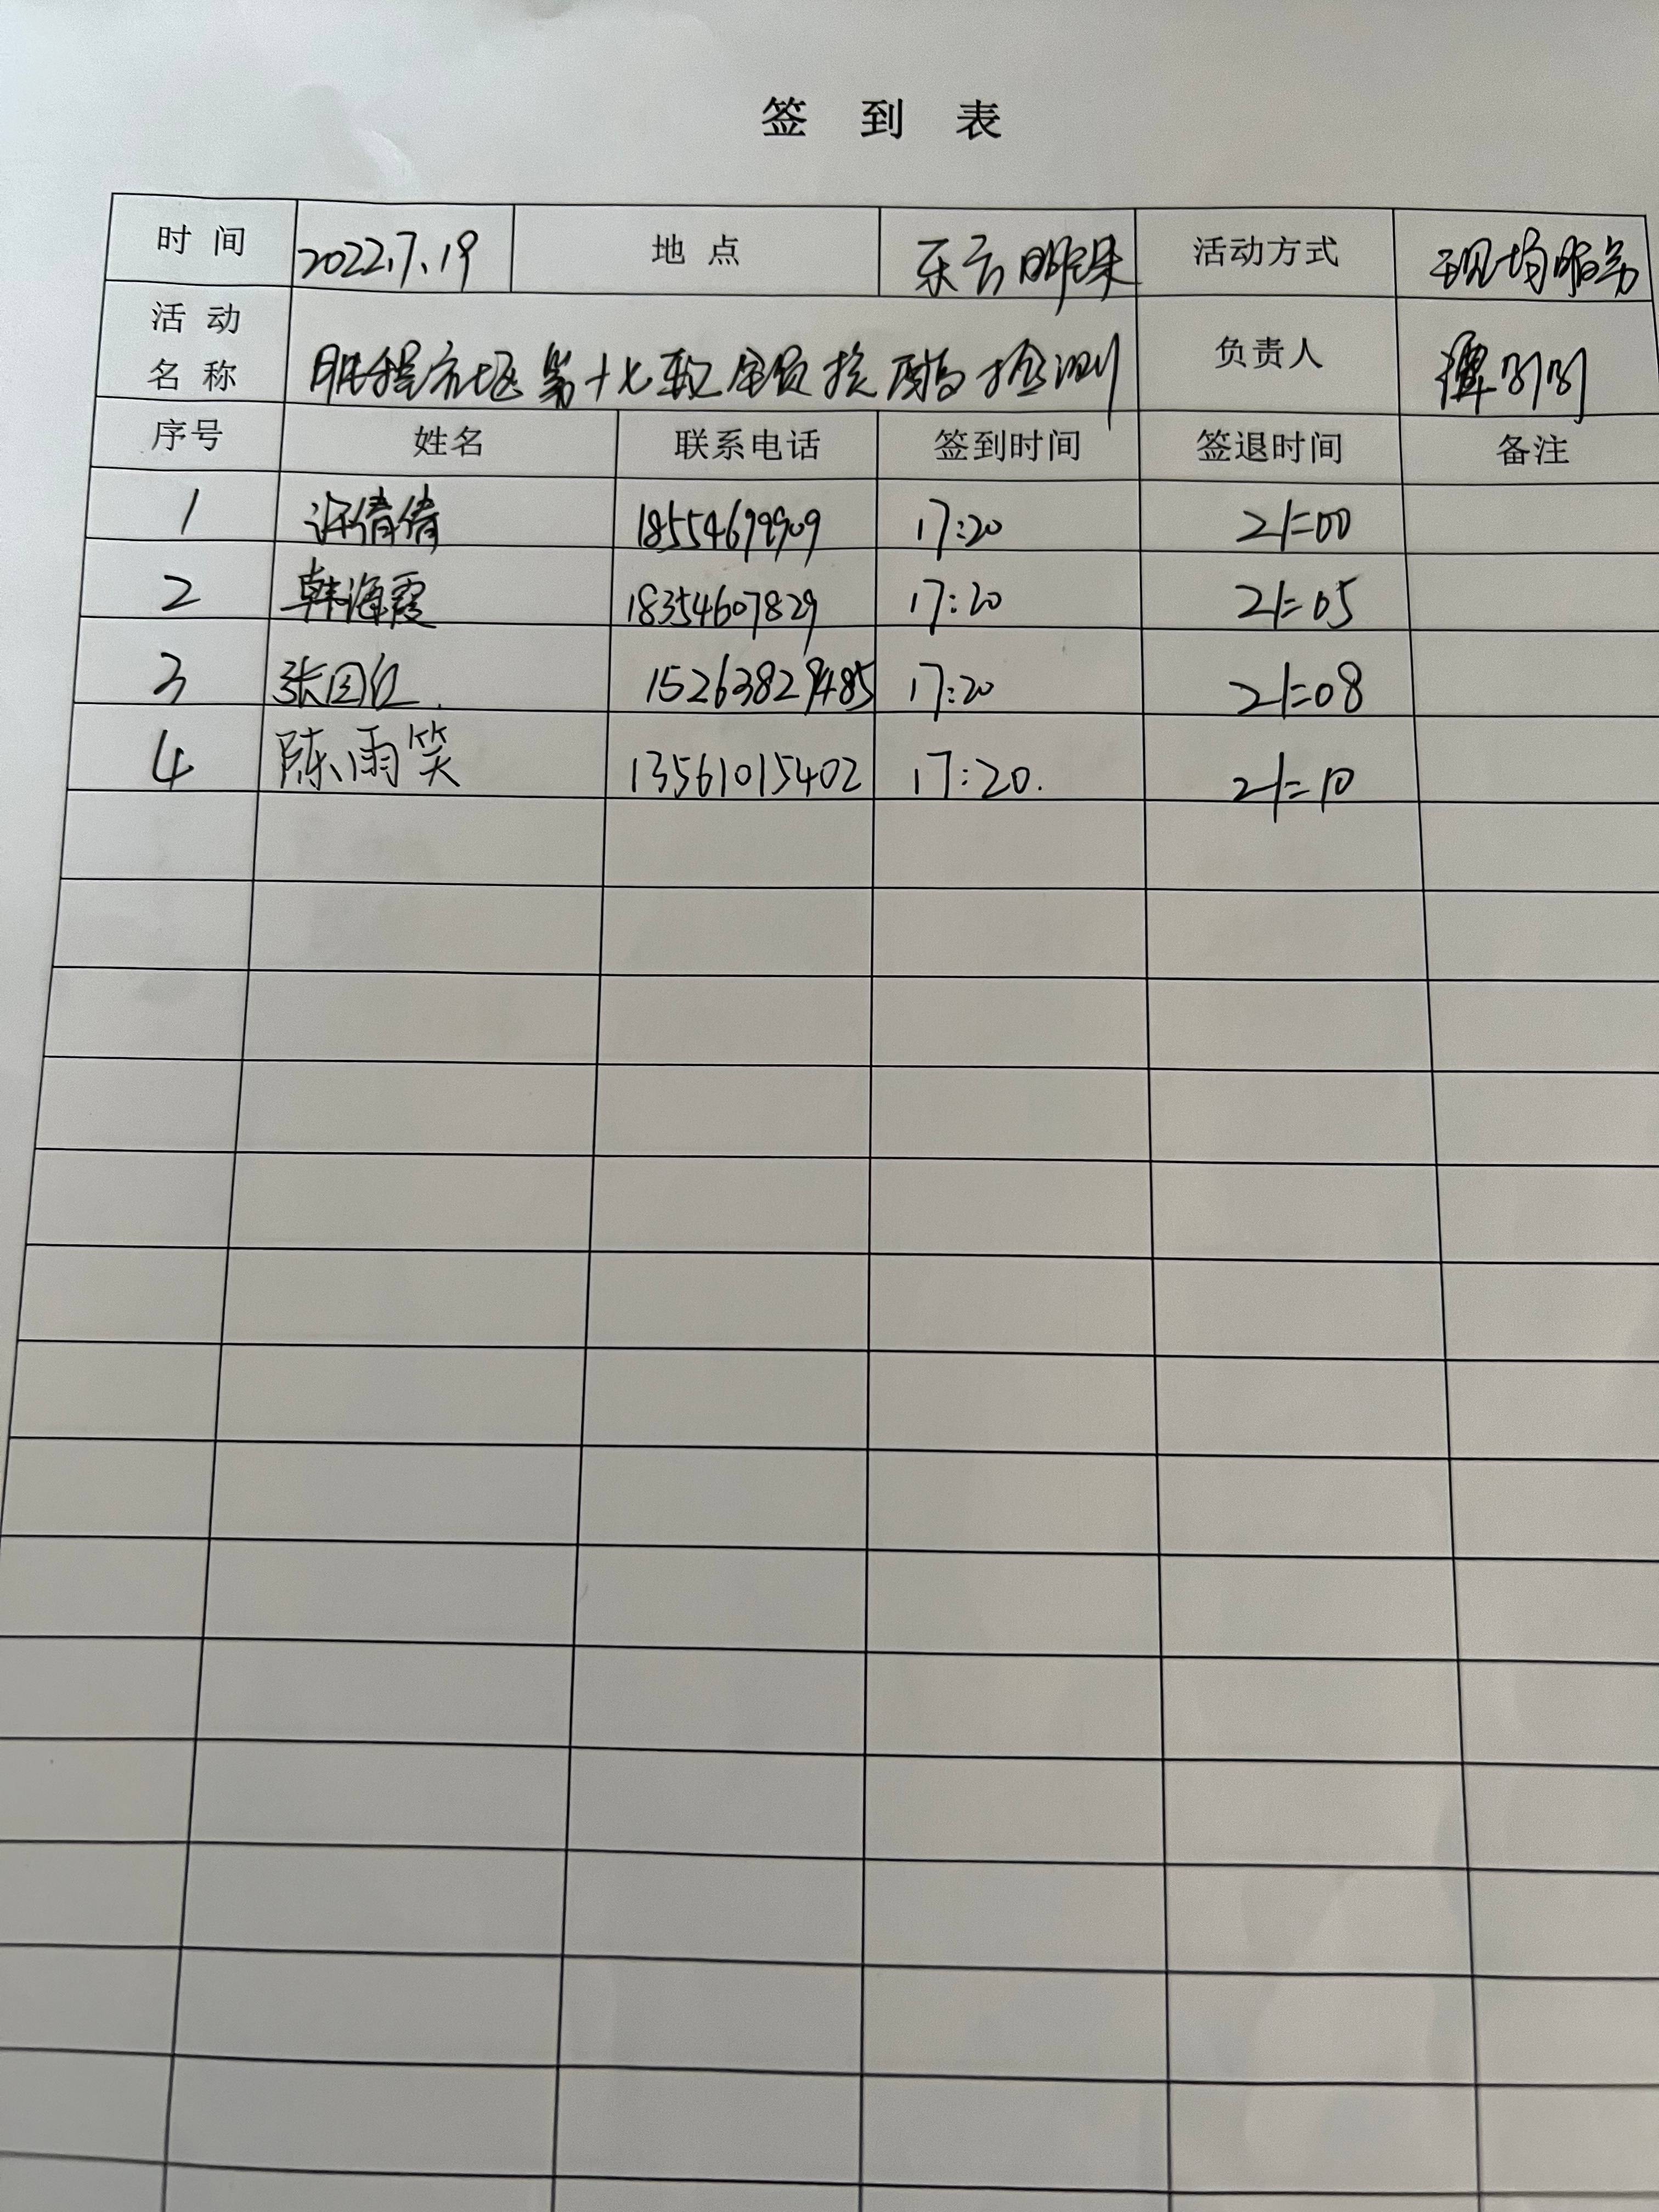 签 到 表
时 间 2022.7.19 地 点 活动方式
活 动
名 称 第十七轮全员核酸检测 负责人 谭
序号 姓名 联系电话 签到时间 签退时间 备注
1 许倩倩 18554699909 17:20 21:00
2 韩海霞 18354607829 17:20 21:05
3 张 15263829485 17:20 21:08
4 陈雨笑 13561015402 17:20. 21:10